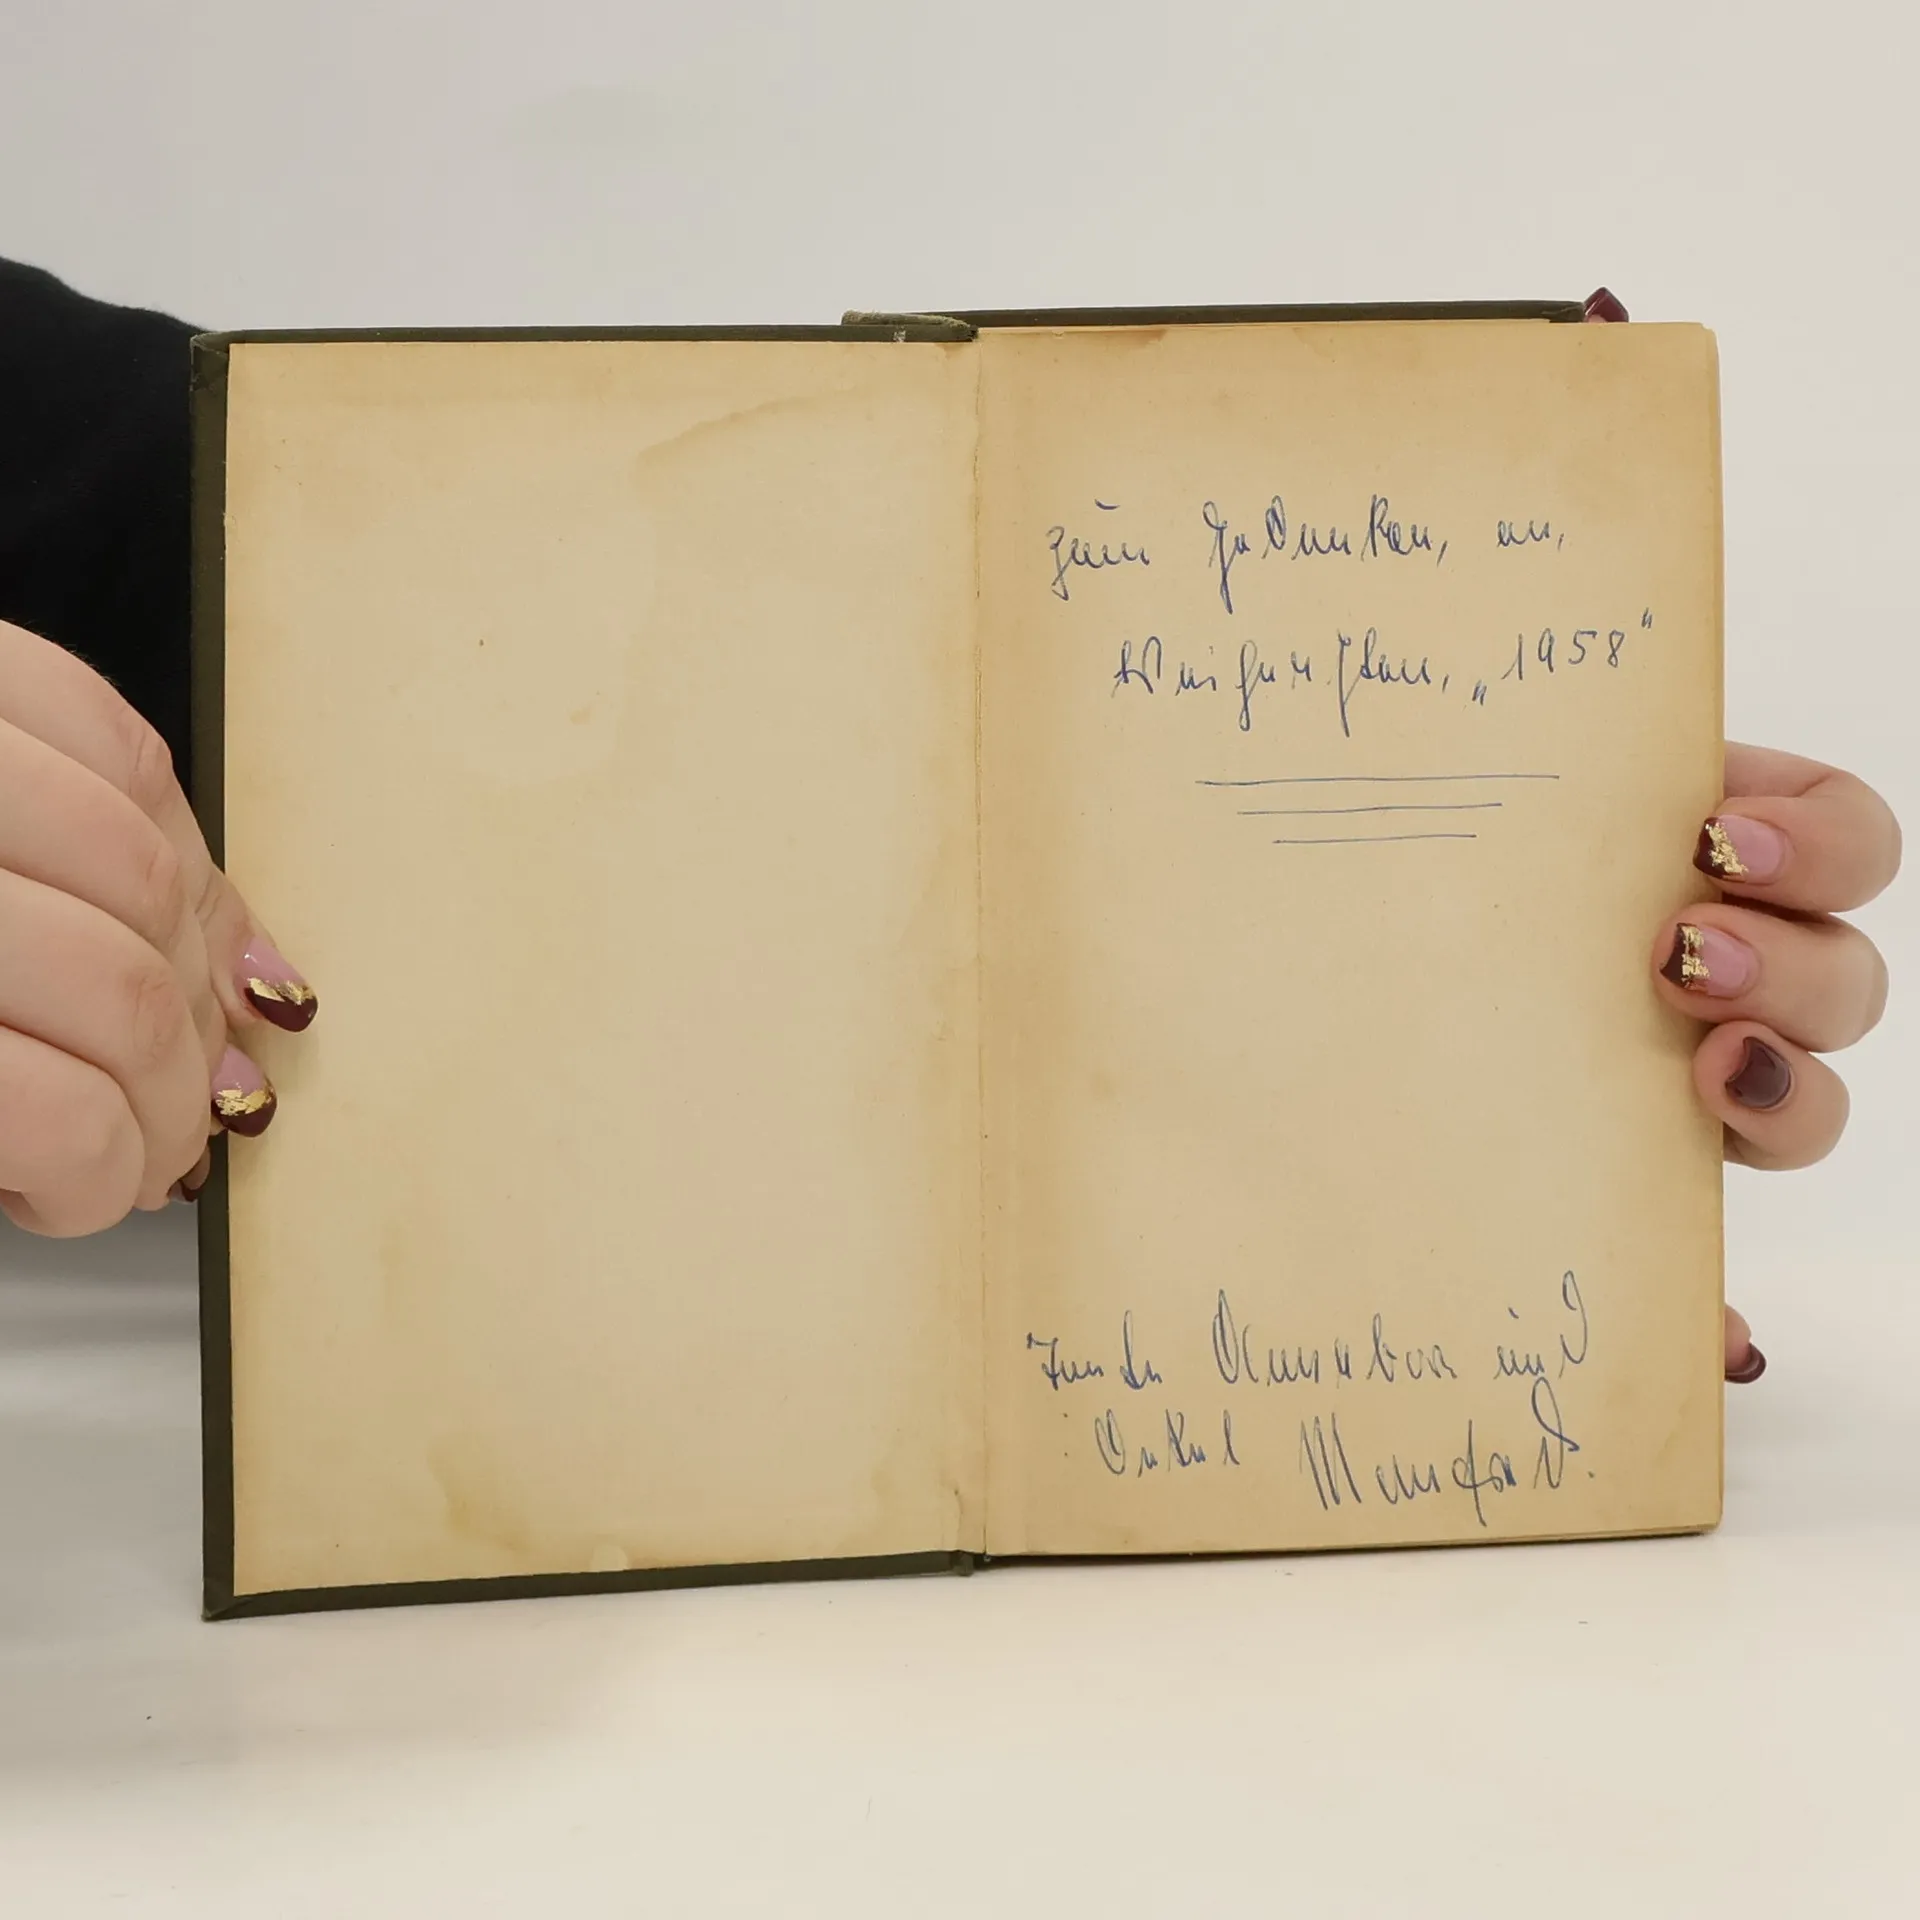 Zum Gedenken, an,
Weihnachten, „1958"
Tante Annebor und
Onkel Manfred.